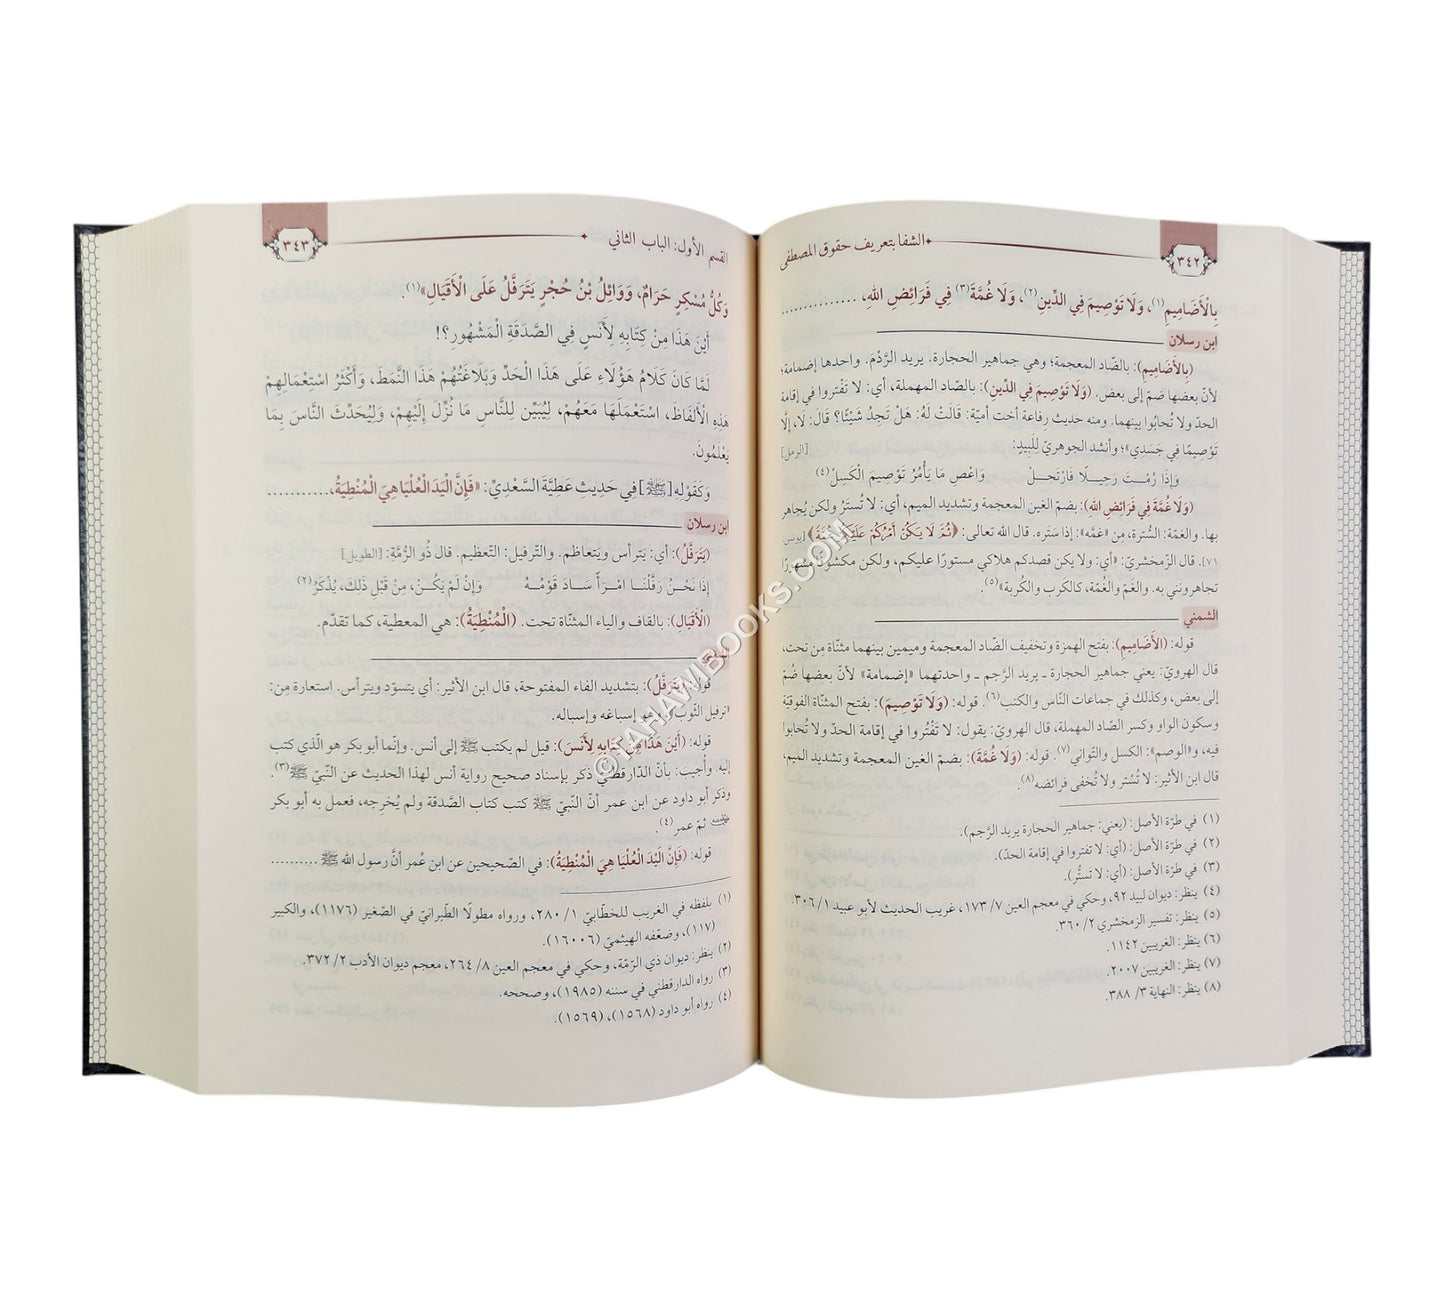 ٣٤٢
الشفا بتعريف حقوق المصطفى
بِالْأَضَامِيمِ(١)، وَلَا تَوْصِيمَ فِي الدِّينِ(٢)، وَلَا غُمَّةَ(٣) فِي فَرَائِضِ اللهِ، ..............
ابن رسلان
(بِالأَضَامِيمِ): بالضّاد المعجمة؛ وهي جماهير الحجارة. يريد الرَّدْمَ. واحدها إضمامة؛
لأنّ بعضها ضمّ إلى بعض. (وَلَا تَوْصِيمَ فِي الدِّينِ): بالصّاد المهملة، أي: لا تَفْتروا في إقامة
الحدّ ولا تُحابُوا بينهما. ومنه حديث رِفاعة أخت أميّة: قَالَتْ لَهُ: هَلْ تَجِدُ شَيْئًا؟ قَالَ: لَا، إِلَّا
تَوْصِيمًا فِي جَسَدِي»؛ وأنشد الجوهريّ لِلَبِيدٍ: [الرمل]
وَإِذَا رُمْتَ رَحِيلًا فَارْتَحِلْ وَاعْصِ مَا يَأْمُرُ تَوْصِيمَ الْكَسِلْ(٤)
(وَلَا غُمَّةَ فِي فَرَائِضِ اللهِ): بضمّ الغين المعجمة وتشديد الميم، أي: لا تُستَرُ ولكن يُجاهر
بها. والغمّة: السُّترة، مِن «غمَّه»: إذا سَتَره. قال الله تعالى: ﴿ثُمَّ لَا يَكُنْ أَمْرُكُمْ عَلَيْكُمْ غُمَّةً﴾ [يونس:
٧١]. قال الزّمخشريّ: «أي: ولا يكن قصدكم هلاكي مستورًا عليكم، ولكن مكشوفًا مشهورًا
تجاهرونني به. والغمّ والغُمّة، كالكرب والكُربة»(٥)
الشمني
قوله: (الأَضَامِيمِ): بفتح الهمزة وتخفيف الضّاد المعجمة وميمين بينهما مثنّاة مِن تحت،
قال الهرويّ: يعني جماهير الحجارة ـ يريد الرَّجم ـ واحدتهما «إضمامة» لأنّ بعضها ضُمّ
إلى بعض، وكذلك في جماعات النّاس والكتب(٦). قوله: (وَلَا تَوْصِيمَ): بفتح المثنّاة الفوقيّة
وسكون الواو وكسر الصّاد المهملة، قال الهرويّ: يقول: لا تَفْتُروا في إقامة الحدّ ولا تُحابوا
فيه، و«الوصم»: الكسل والتّواني(٧). قوله: (وَلَا غُمَّةَ): بضمّ الغين المعجمة وتشديد الميم،
قال ابن الأثير: لا تُسْتر ولا تُخفى فرائضه(٨).
(١) في طرّة الأصل: (يعني: جماهير الحجارة يريد الرَّجم).
(٢) في طرّة الأصل: (أي: لا تفتروا في إقامة الحدّ).
(٣) في طرّة الأصل: (أي: لا تَستُّر).
(٤) ينظر: ديوان لبيد ٩٢، وحكي في معجم العين ٧/ ١٧٣، غريب الحديث لأبو عبيد ١/ ٣٠٦.
(٥) ينظر: تفسير الزمخشري ٢/ ٣٦٠.
(٦) ينظر: الغريبين ١١٤٢.
(٧) ينظر: الغريبين ٢٠٠٧.
(٨) ينظر: النهاية ٣/ ٣٨٨.
القسم الأول: الباب الثاني
٣٤٣
وَكُلُّ مُسْكِرٍ حَرَامٌ، وَوَائِلُ بْنُ حُجْرٍ يَتَرَفَّلُ عَلَى الْأَقْيَالِ»(١).
أَيْنَ هَذَا مِنْ كِتَابِهِ لِأَنَسٍ فِي الصَّدَقَةِ الْمَشْهُورِ؟!
لَمَّا كَانَ كَلَامُ هَؤُلَاءِ عَلَى هَذَا الْحَدِّ وَبَلَاغَتُهُمْ هَذَا النَّمَطَ، وَأَكْثَرُ اسْتِعْمَالِهِمْ
هَذِهِ الْأَلْفَاظَ، اسْتَعْمَلَهَا مَعَهُمْ، لِيُبَيِّنَ لِلنَّاسِ مَا نُزِّلَ إِلَيْهِمْ، وَلِيُحَدِّثَ النَّاسَ بِمَا
يَعْلَمُونَ.
وَكَقَوْلِهِ [ﷺ] فِي حَدِيثِ عَطِيَّةَ السَّعْدِيِّ: «فَإِنَّ الْيَدَ الْعُلْيَا هِيَ الْمُنْطِيَةُ، ...........
ابن رسلان
(يَتَرَفَّلُ): أي: يَترأس ويَتعاظم. والتّرفيل: التّعظيم. قال ذُو الرُّمَّة: [الطويل]
إِذَا نَحْنُ رَفَّلْنَا امْرَأً سَادَ قَوْمُهُ وَإِنْ لَمْ يَكُنْ، مِنْ قَبْلِ ذَلِكَ، يُذْكَرْ(٢)
(الْأَقْيَالِ): بالقاف والياء المثنّاة تحت. (الْمُنْطِيَةُ): هي المعطية، كما تقدّم.
قوله: (يَتَرَفَّلُ): بتشديد الفاء المفتوحة، قال ابن الأثير: أي يتسوّد ويترأس. استعارة مِن:
ترفيل الثّوب وهو إسباغه وإسباله.
قوله: (أَيْنَ هَذَا مِنْ كِتَابِهِ لِأَنَسٍ): قيل لم يكتب ﷺ إلى أنس. وإنّما أبو بكر هو الّذي كتب
إليه. وأُجيب: بأنّ الدّارقطنيّ ذكر بإسناد صحيح رواية أنس لهذا الحديث عن النّبيّ ﷺ(٣).
وذكر أبو داود عن ابن عمر أنّ النّبيّ ﷺ كتب كتاب الصّدقة ولم يُخرِجه، فعمل به أبو بكر
ثمّ عمر(٤).
قوله: (فَإِنَّ الْيَدَ الْعُلْيَا هِيَ الْمُنْطِيَةُ): في الصّحيحين عن ابن عُمر أنّ رسول الله ﷺ .........
(١) بلفظه في الغريب للخطّابيّ ١/ ٢٨٠، ورواه مطولًا الطّبرانيّ في الصّغير (١١٧٦)، والكبير
(١١٧)، وضعّفه الهيثميّ (١٦٠٠٦).
(٢) ينظر: ديوان ذي الرّمّة، وحكي في معجم العين ٨/ ٢٦٤، معجم ديوان الأدب ٢/ ٣٧٢.
(٣) رواه الدارقطني في سننه (١٩٨٥)، وصححه.
(٤) رواه أبو داود (١٥٦٨)، (١٥٦٩).
©TAHAWIBOOKS.COM